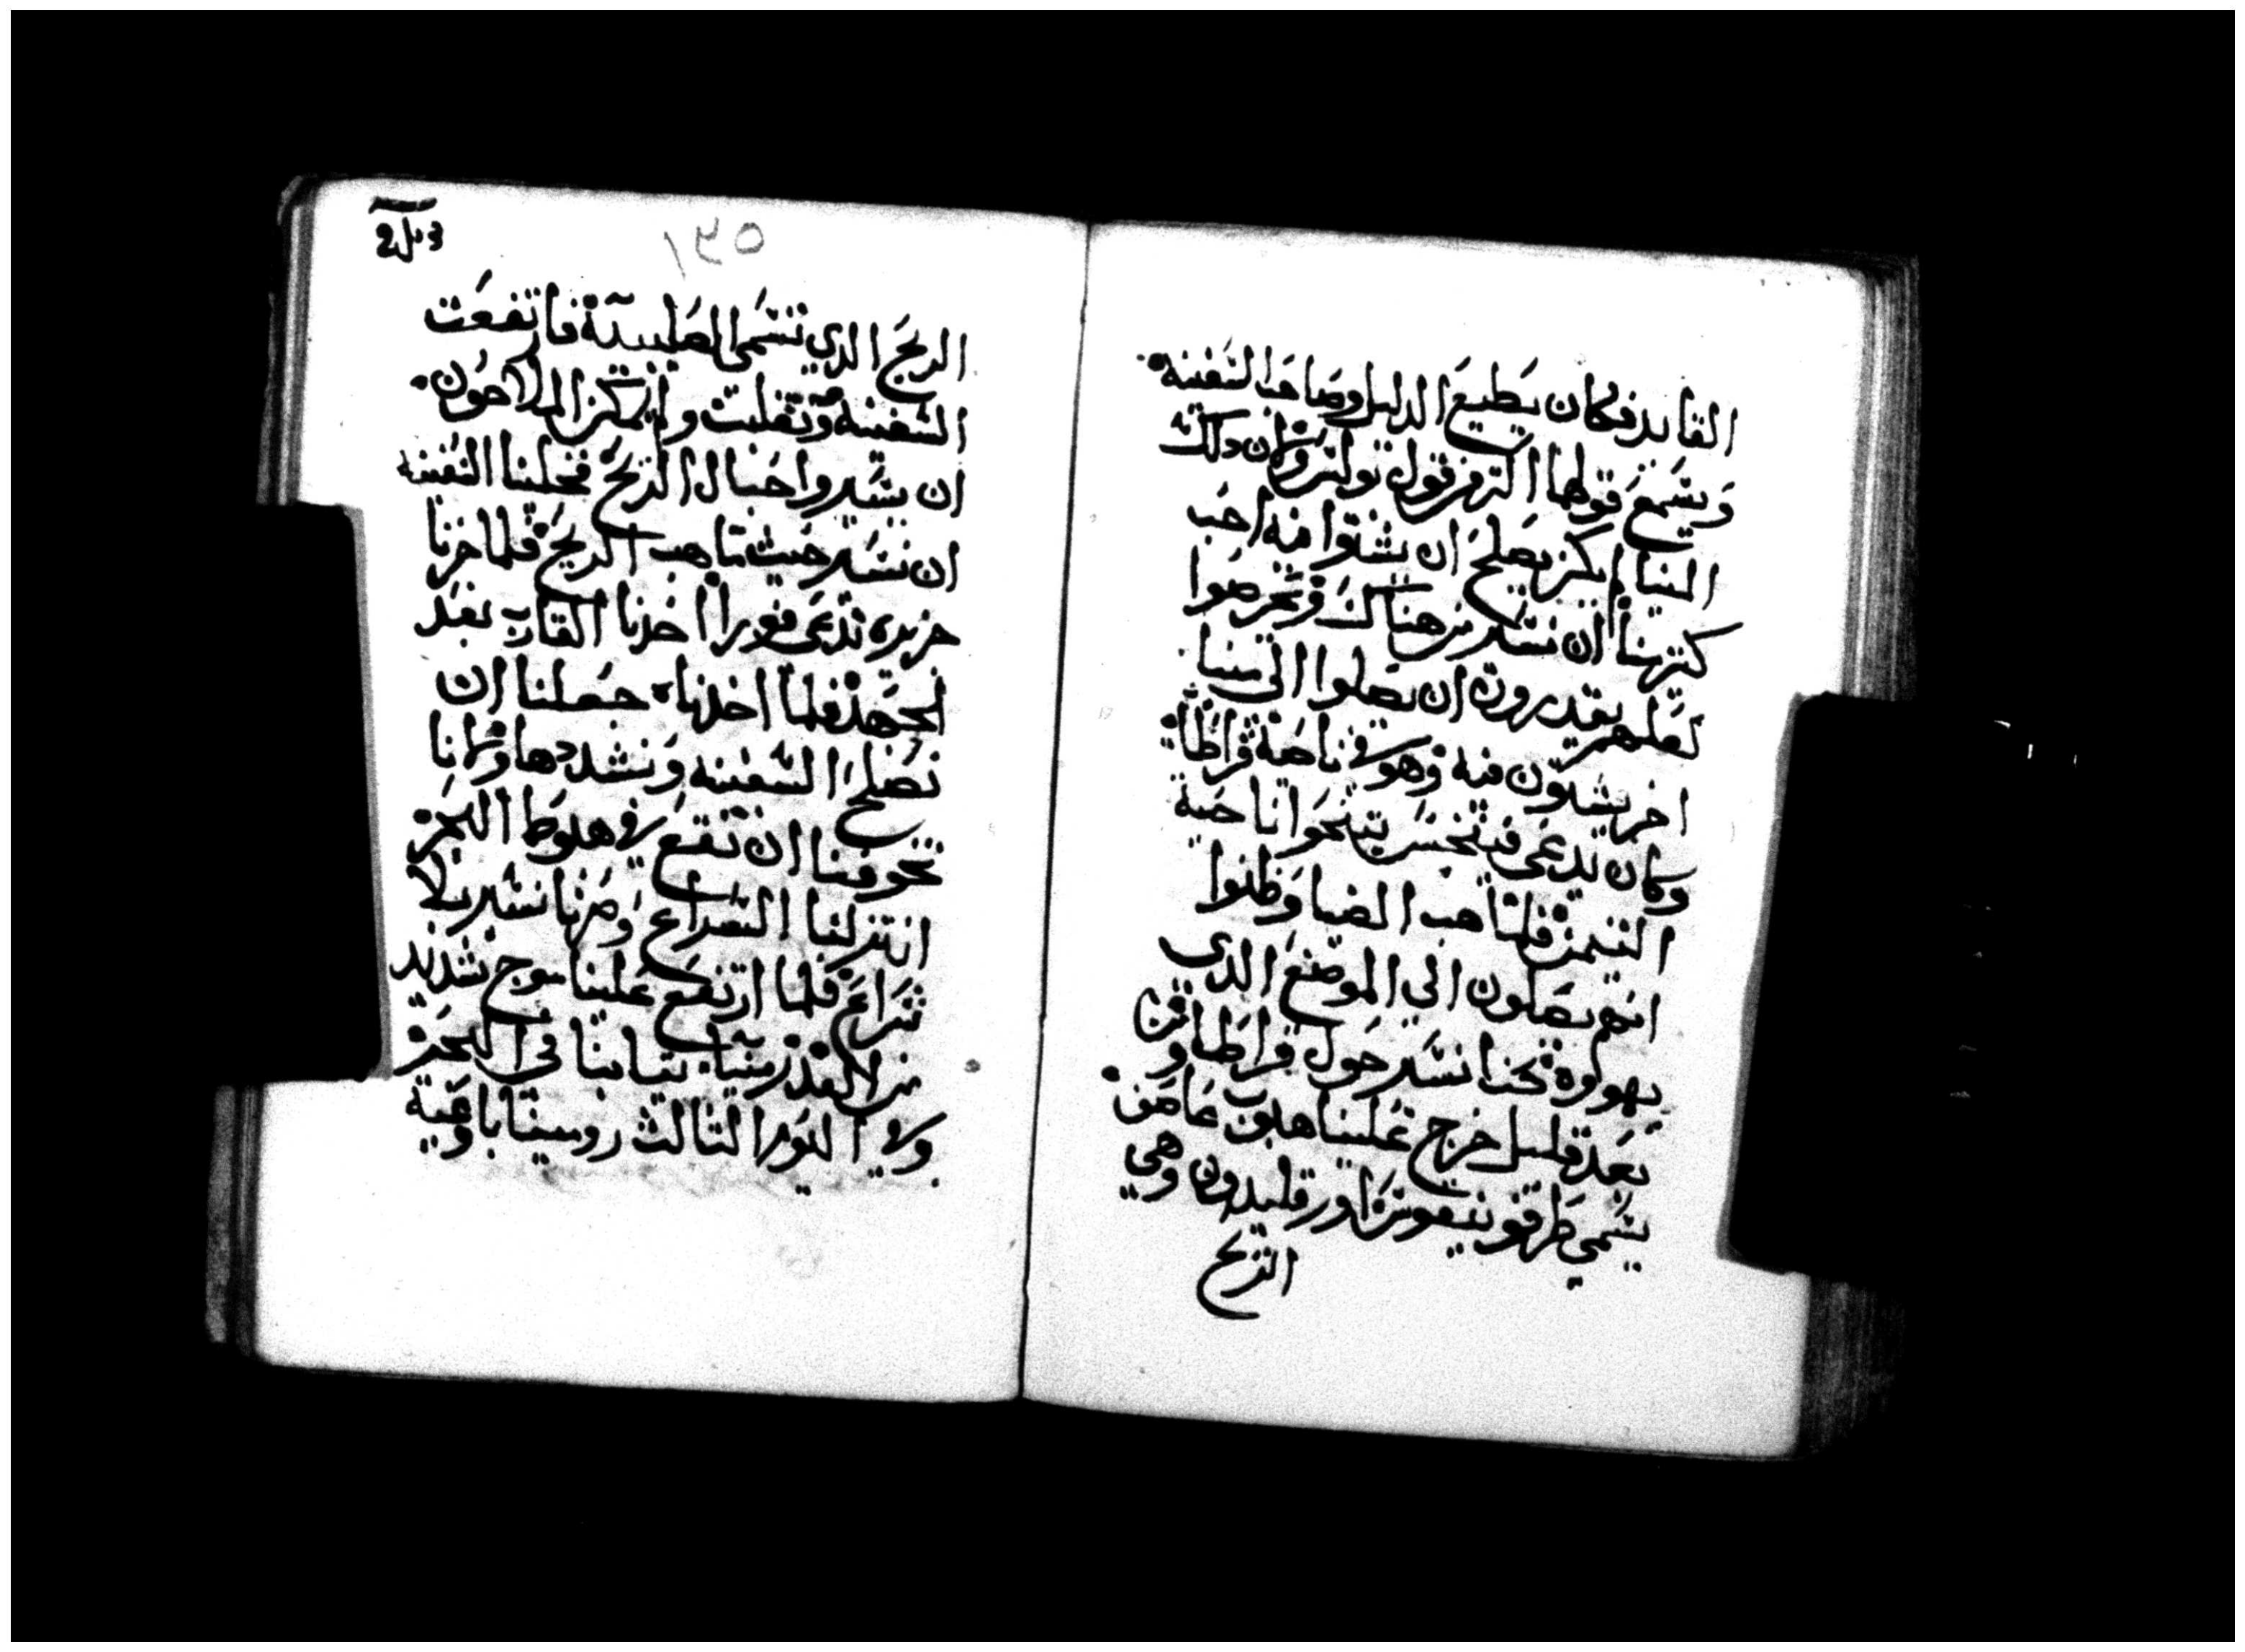 القايد فكان يطيع الدليل وصاحب السفينه
ويسمع قولهما اكثر من قول بولس ومن ان ذلك
المينا لم يكن يصلح ان يشتوا فيه احب
كثير منا ان نسير من هناك ويحرصوا
لعلهم يقدرون ان يصلوا الي مينا
اخر يشتون فيه وهو في ناحية قراطا
وكان يدعي فينخس يتيحوا ناحية
التيمن فلما هب الصبا وظنوا
انهم يصلون الي الموضع الذي
يهوونه نحنا نسير حول قراطا ومن
بعد قليل خرج علينا هبوب عاصف
يسمي طرقونيقوس اورقليدون وهي
الريح
١٢٥
الريح الذي تسمي الصليبية فارتفعت
السفينه وتقلبت ولم يمكن الملاحون
ان يسيروا حبال الريح فحلينا السفينه
ان تسير حيث ما هب الريح فلما جزنا
جزيره تدعي فورا اخذنا القارب بعد
الجهد فلما اخذناه جعلنا ان
نصلح السفينه ونشددها ومن انا
تخوفنا ان نقع في هبوط البحر
انتزلنا الشراع وصرنا نسير بلا
شراع فلما ارتفع علينا موج شديد
من الغد رمينا ثيابنا في البحر
وفي اليوم الثالث رمينا باوعية